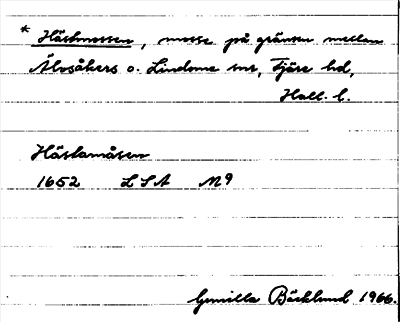 * Hästmossen, mosse på gränsen mellan
Älvsåkers o. Lindome snr, Fjäre hd,
Hall. l.
Hästamåsen
1652 LSA N9
Gunilla Bäcklund 1966.